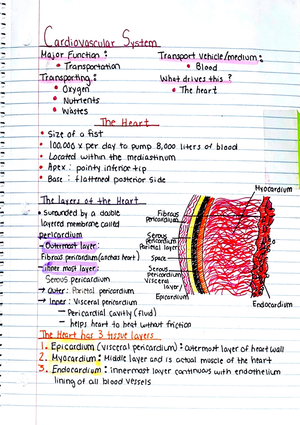 Cardiovascular System
Major Function:
• Transportation
Transport vehicle/medium:
• Blood
Transporting:
• Oxygen
• Nutrients
• Wastes
What drives this?
• The heart
The Heart
• Size of a fist
• 100,000 x per day to pump 8,000 liters of blood
• Located within the mediastinum
• Apex: pointy inferior tip
• Base: flattened posterior side
The layers of the Heart
• Surounded by a double
layered membrane called
pericardium
- Outermost layer:
Fibrous pericardium (anchors heart)
- Inner most layer:
Serous pericardium
→ Outer: Parital pericardium
→ Inner: Visceral pericardium
— Pericardial cavity (fluid)
— helps heart to beat without friction
Myocardium
Fibrous
pericardium
Serous
pericardium
Parietal layer
Space
Serous
pericardium
visceral
layer
Epicardium
Endocardium
The Heart has 3 tissue layers
1. Epicardium (visceral pericardium): outermost layer of heart wall
2. Myocardium: Middle layer and is actual muscle of the heart
3. Endocardium: innermost layer continuous with endothelium
lining of all blood vessels